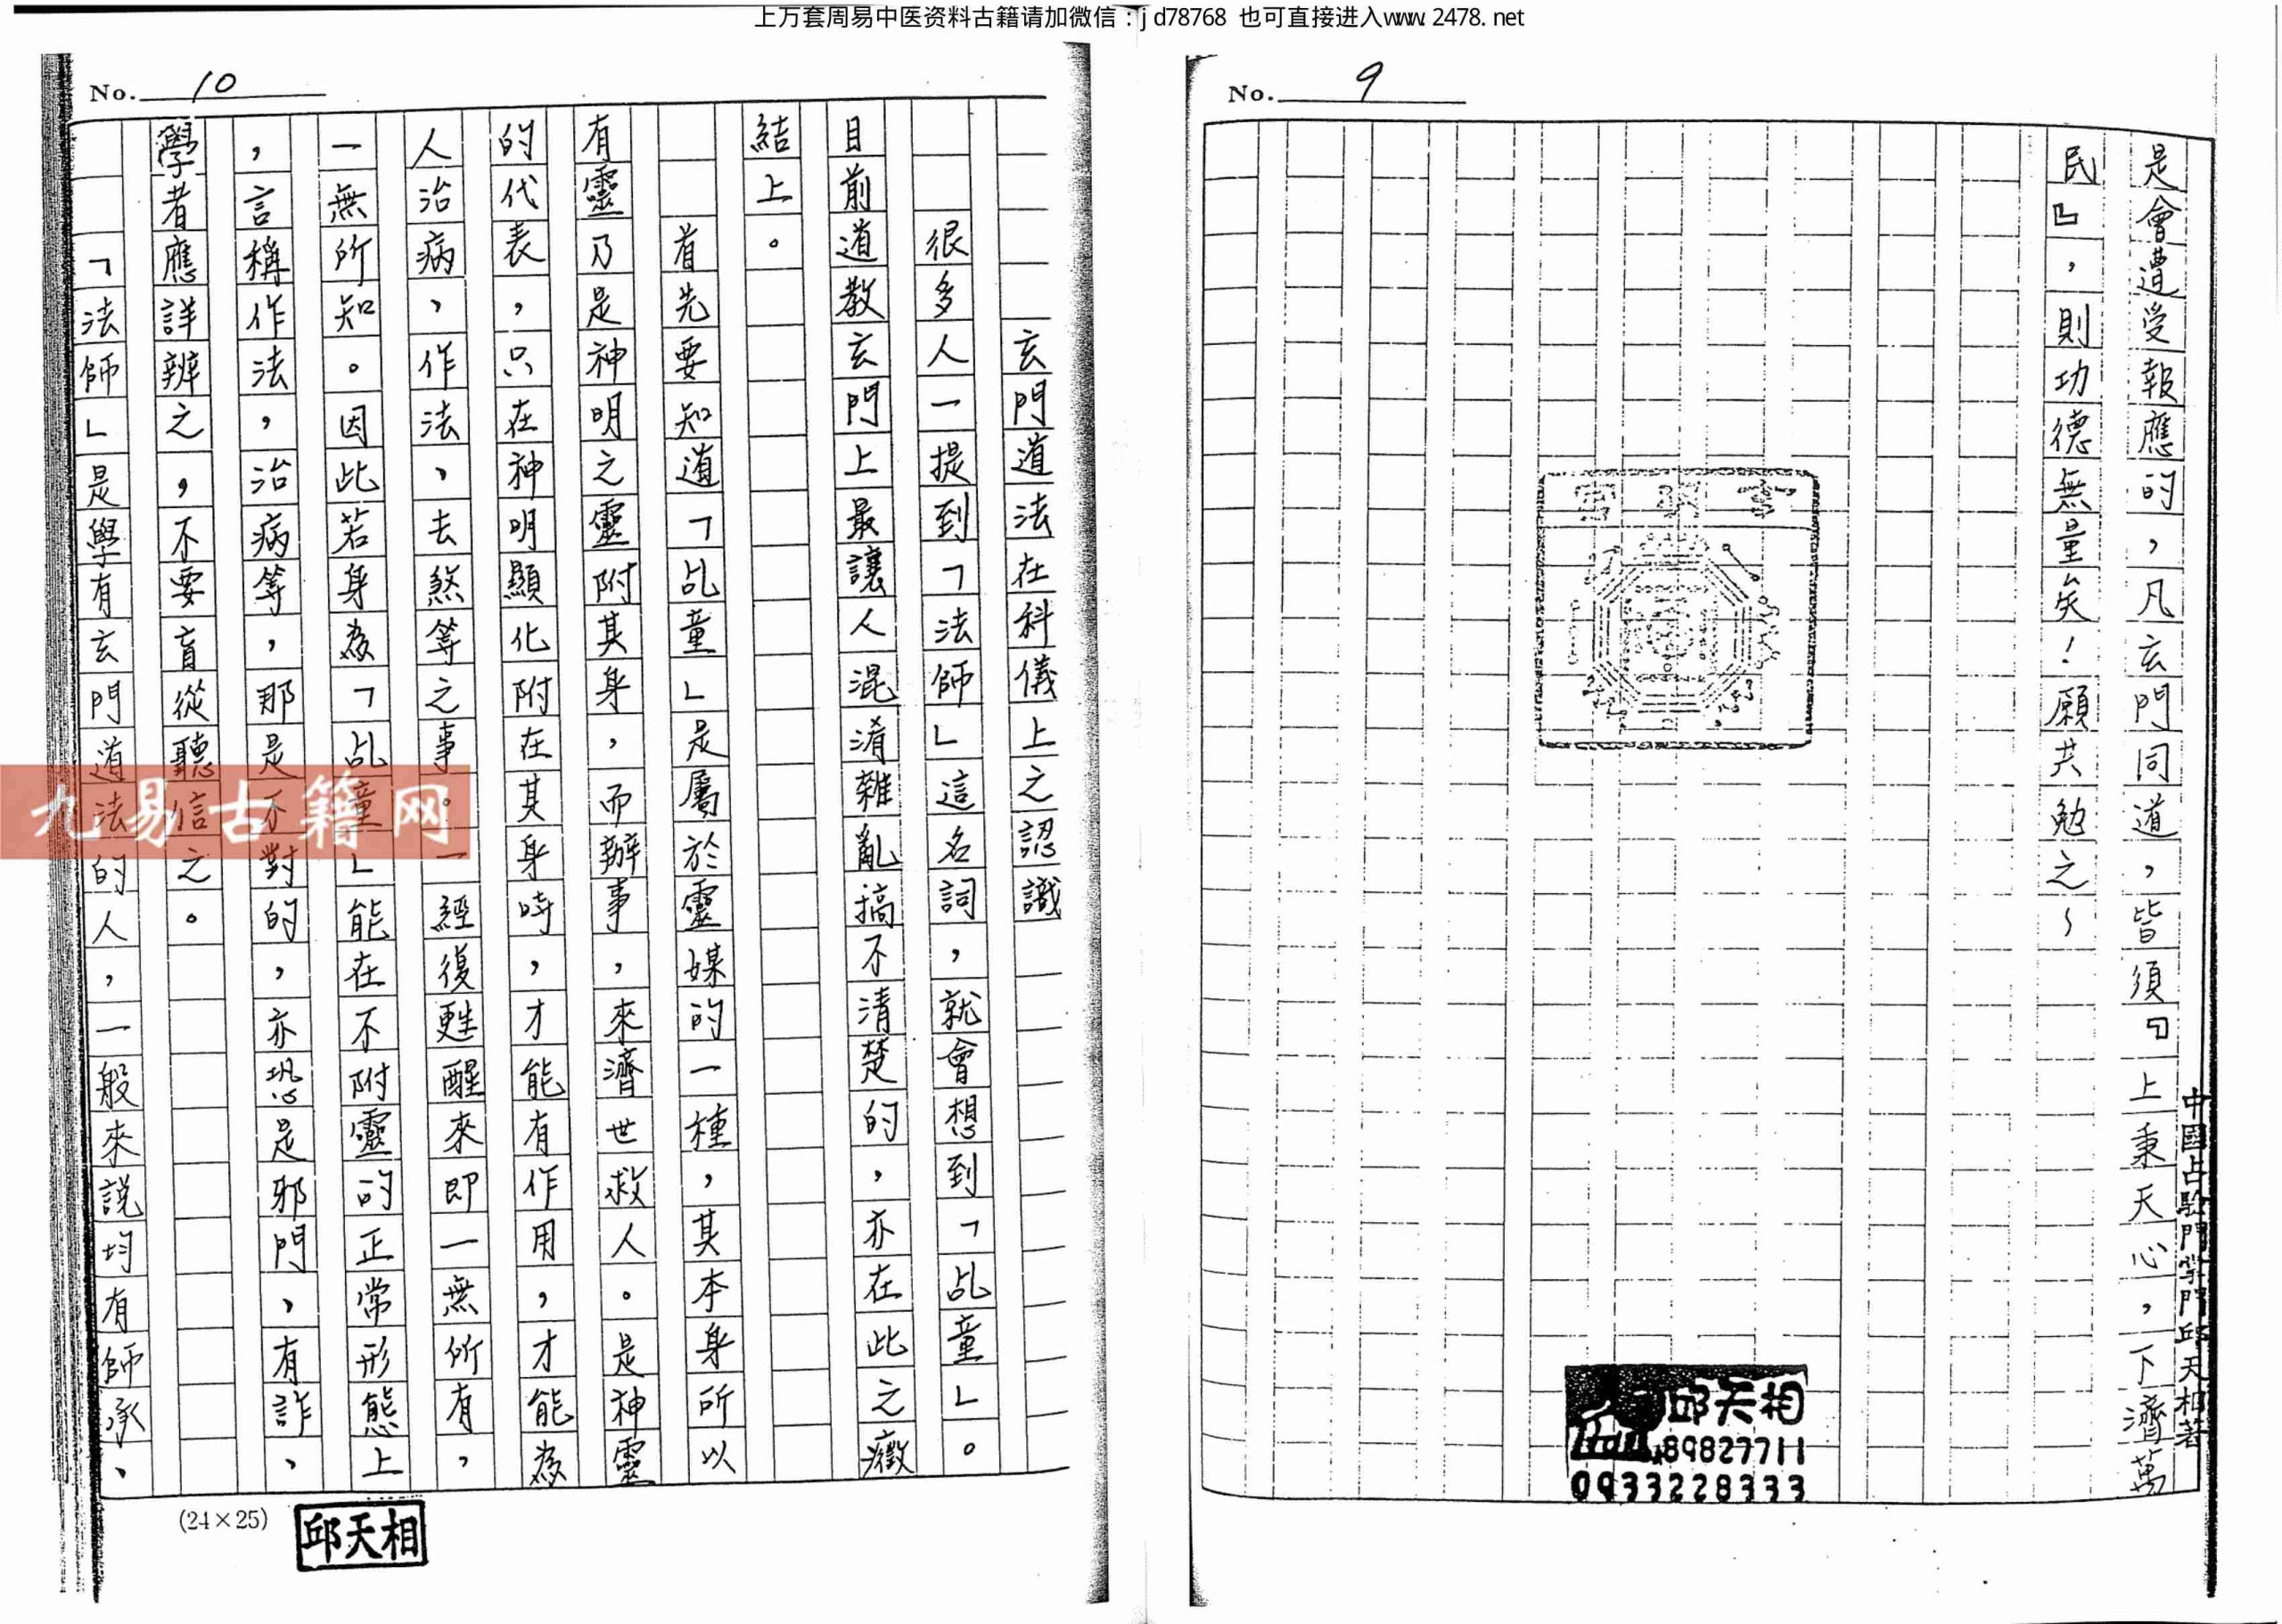 上万套周易中医资料古籍请加微信：jd78768 也可直接进入www.2478.net
No. 9
是會遭受報應的，凡玄門同道，皆須『上秉天心，下濟萬
民』，則功德無量矣！願共勉之～
中國占驗門掌門邱天相著
邱天相
89827711
0933228333
No. 10
玄門道法在科儀上之認識
很多人一提到「法師」這名詞，就會想到「乩童」。
目前道教玄門上最讓人混淆雜亂搞不清楚的，亦在此之癥
結上。
首先要知道「乩童」是屬於靈媒的一種，其本身所以
有靈乃是神明之靈附其身，而辦事，來濟世救人。是神靈
的代表，只在神明顯化附在其身時，才能有作用，才能為
人治病，作法，去煞等之事。一經復甦醒來即一無所有，
一無所知。因此若身為「乩童」能在不附靈的正常形態上
，言稱作法，治病等，那是不對的，亦恐是邪門，有詐，
學者應詳辨之，不要盲從聽信之。
「法師」是學有玄門道法的人，一般來說均有師承、
(24×25)
邱天相
九易古籍网